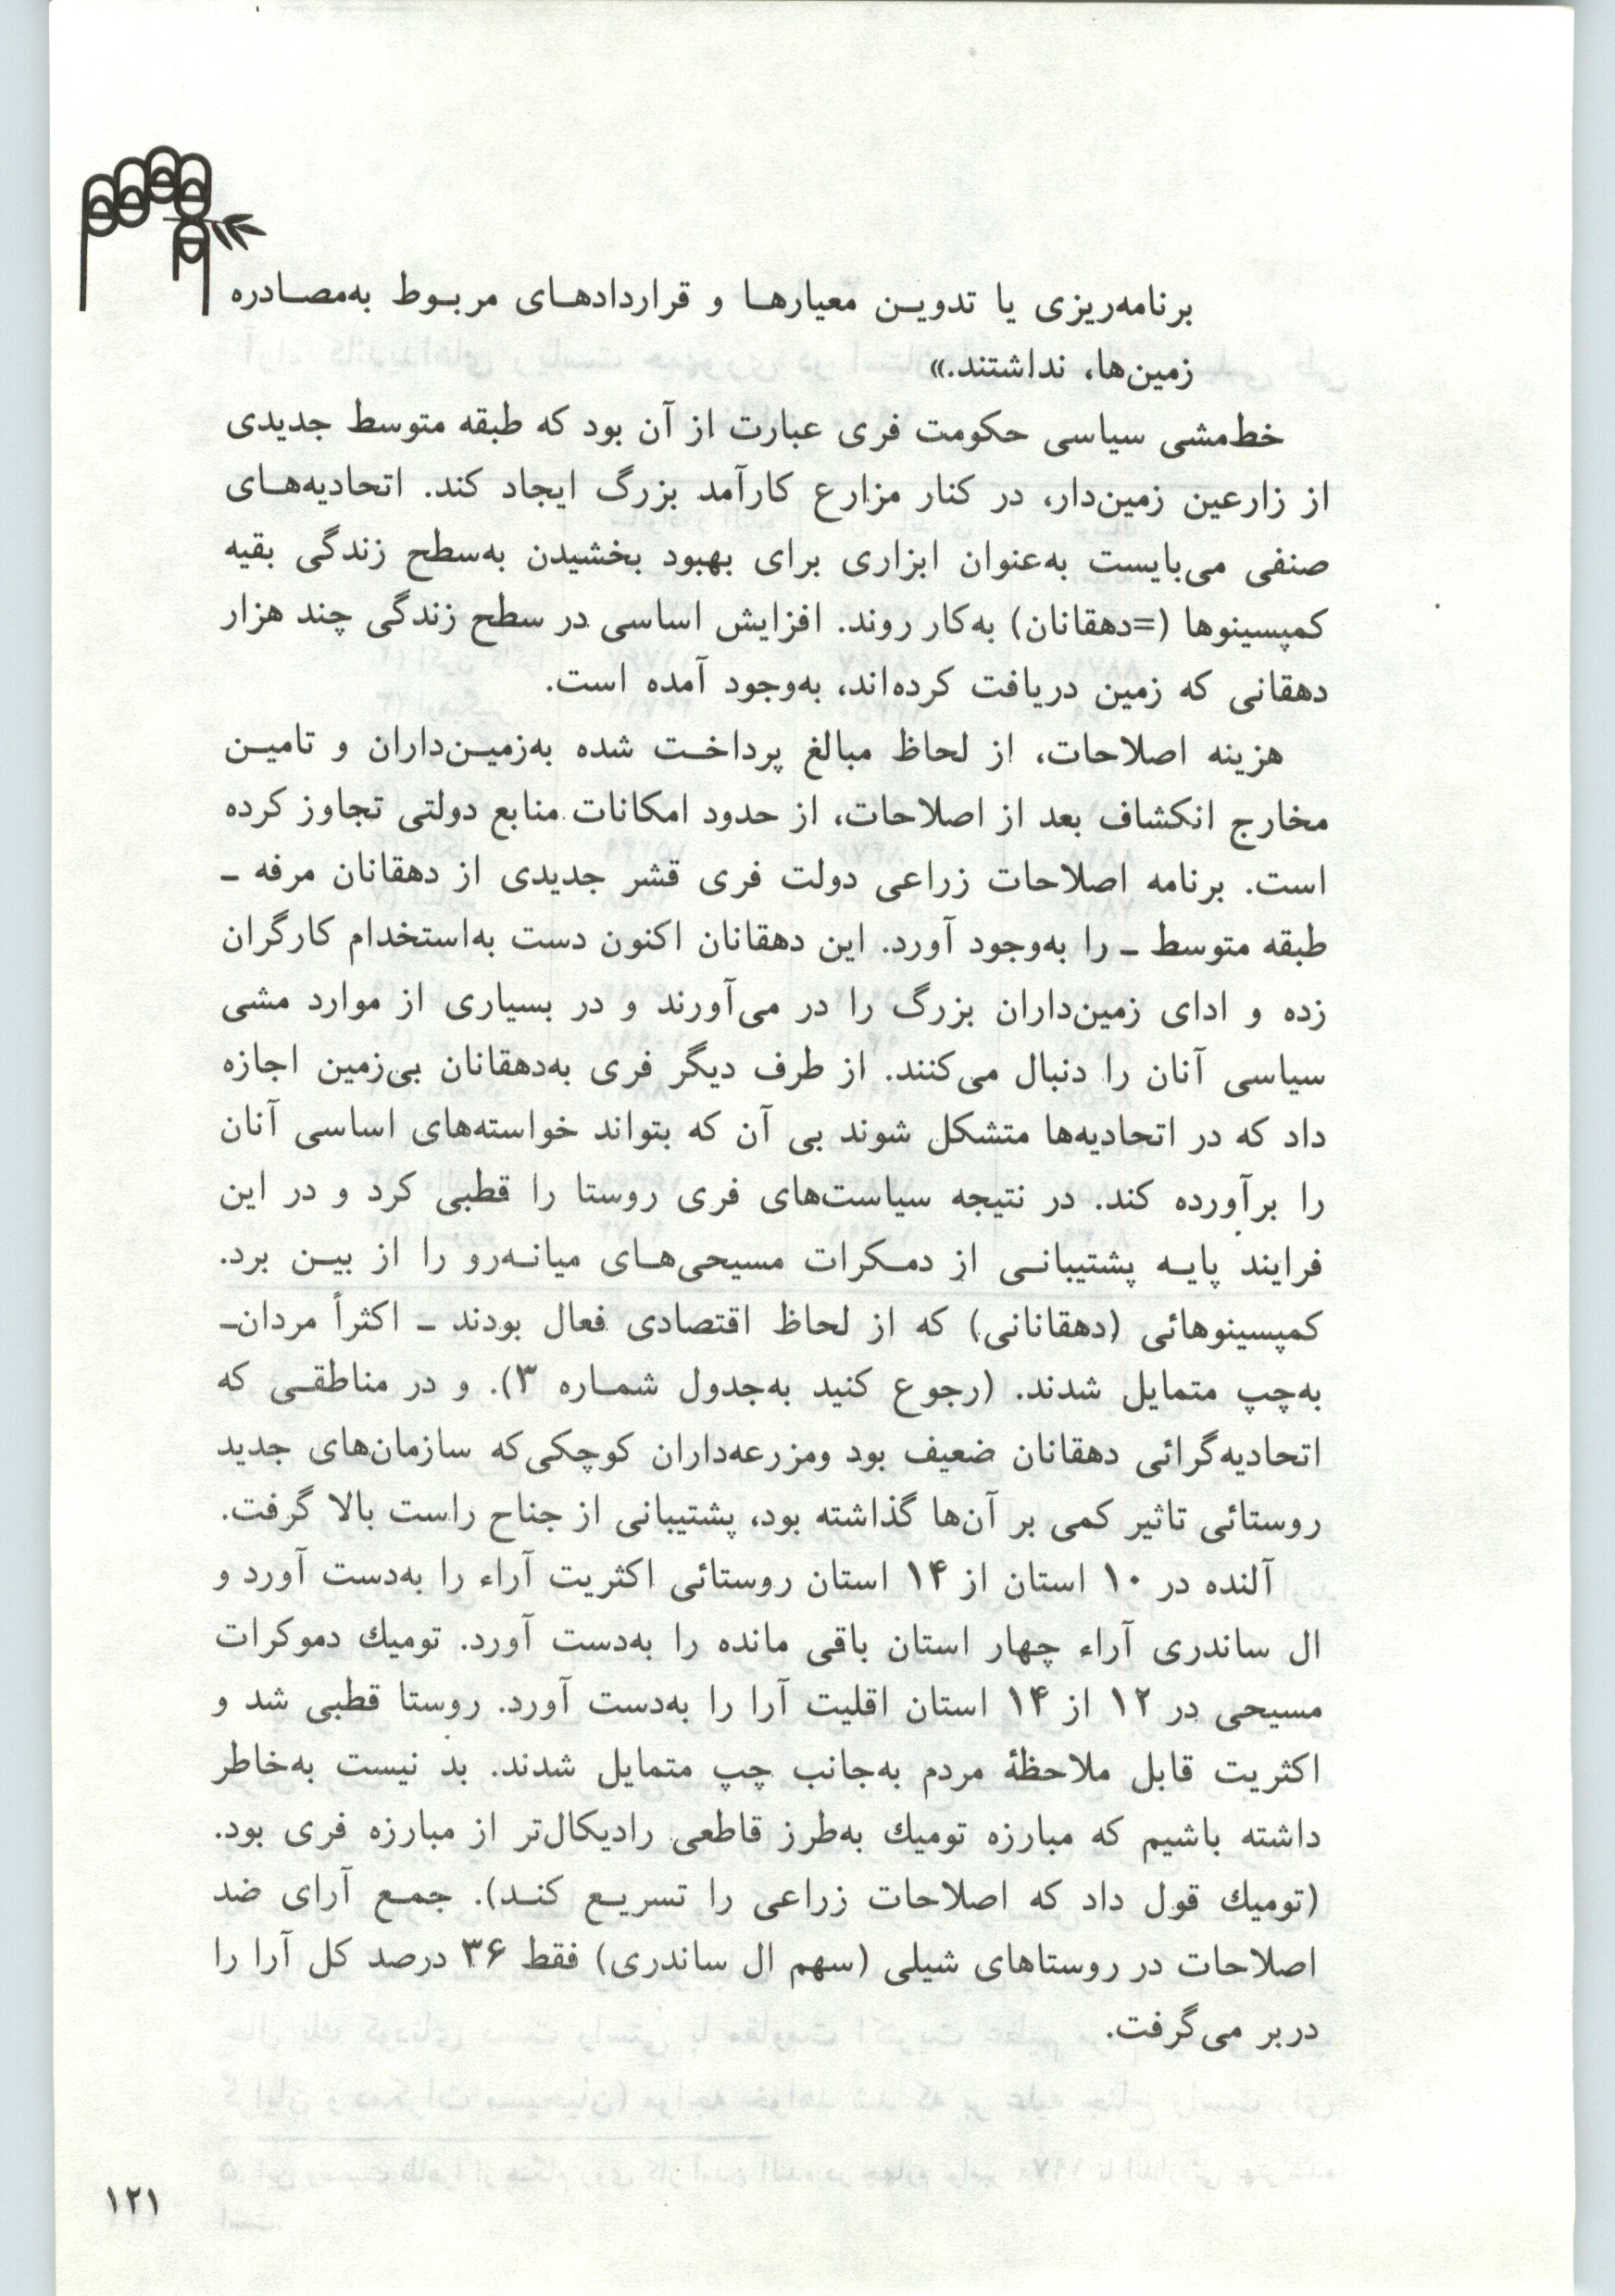 برنامه‌ریزی یا تدویـن معیارهـا و قراردادهـای مربـوط به‌مصـادره
زمین‌ها، نداشتند.»
خط‌مشی سیاسی حکومت فری عبارت از آن بود که طبقه متوسط جدیدی
از زارعین زمین‌دار، در کنار مزارع کارآمد بزرگ ایجاد کند. اتحادیه‌هـای
صنفی می‌بایست به‌عنوان ابزاری برای بهبود بخشیدن به‌سطح زندگی بقیه
کمپسینوها (=دهقانان) به‌کار روند. افزایش اساسی در سطح زندگی چند هزار
دهقانی که زمین دریافت کرده‌اند، به‌وجود آمده است.
هزینه اصلاحات، از لحاظ مبالغ پرداخـت شده به‌زمیـن‌داران و تامیـن
مخارج انکشاف بعد از اصلاحات، از حدود امکانات منابع دولتی تجاوز کرده
است. برنامه اصلاحات زراعی دولت فری قشر جدیدی از دهقانان مرفه ـ
طبقه متوسط ـ را به‌وجود آورد. این دهقانان اکنون دست به‌استخدام کارگران
زده و ادای زمین‌داران بزرگ را در می‌آورند و در بسیاری از موارد مشی
سیاسی آنان را دنبال می‌کنند. از طرف دیگر فری به‌دهقانان بی‌زمین اجازه
داد که در اتحادیه‌ها متشکل شوند بی آن که بتواند خواسته‌های اساسی آنان
را برآورده کند. در نتیجه سیاست‌های فری روستا را قطبی کرد و در این
فرایند پایـه پشتیبانـی از دمـکرات مسیحی‌هـای میانـه‌رو را از بیـن برد.
کمپسینوهائی (دهقانانی) که از لحاظ اقتصادی فعال بودند ـ اکثراً مردان‌ـ
به‌چپ متمایل شدند. (رجوع کنید به‌جدول شمـاره ۳). و در مناطقـی که
اتحادیه‌گرائی دهقانان ضعیف بود ومزرعه‌داران کوچکی‌که سازمان‌های جدید
روستائی تاثیر کمی بر آن‌ها گذاشته بود، پشتیبانی از جناح راست بالا گرفت.
آلنده در ۱۰ استان از ۱۴ استان روستائی اکثریت آراء را به‌دست آورد و
ال ساندری آراء چهار استان باقی مانده را به‌دست آورد. تومیك دموکرات
مسیحی در ۱۲ از ۱۴ استان اقلیت آرا را به‌دست آورد. روستا قطبی شد و
اکثریت قابل ملاحظهٔ مردم به‌جانب چپ متمایل شدند. بد نیست به‌خاطر
داشته باشیم که مبارزه تومیك به‌طرز قاطعی رادیکال‌تر از مبارزه فری بود.
(تومیك قول داد که اصلاحات زراعی را تسریـع کنـد). جمـع آرای ضد
اصلاحات در روستاهای شیلی (سهم ال ساندری) فقط ۳۶ درصد کل آرا را
دربر می‌گرفت.
۱۲۱